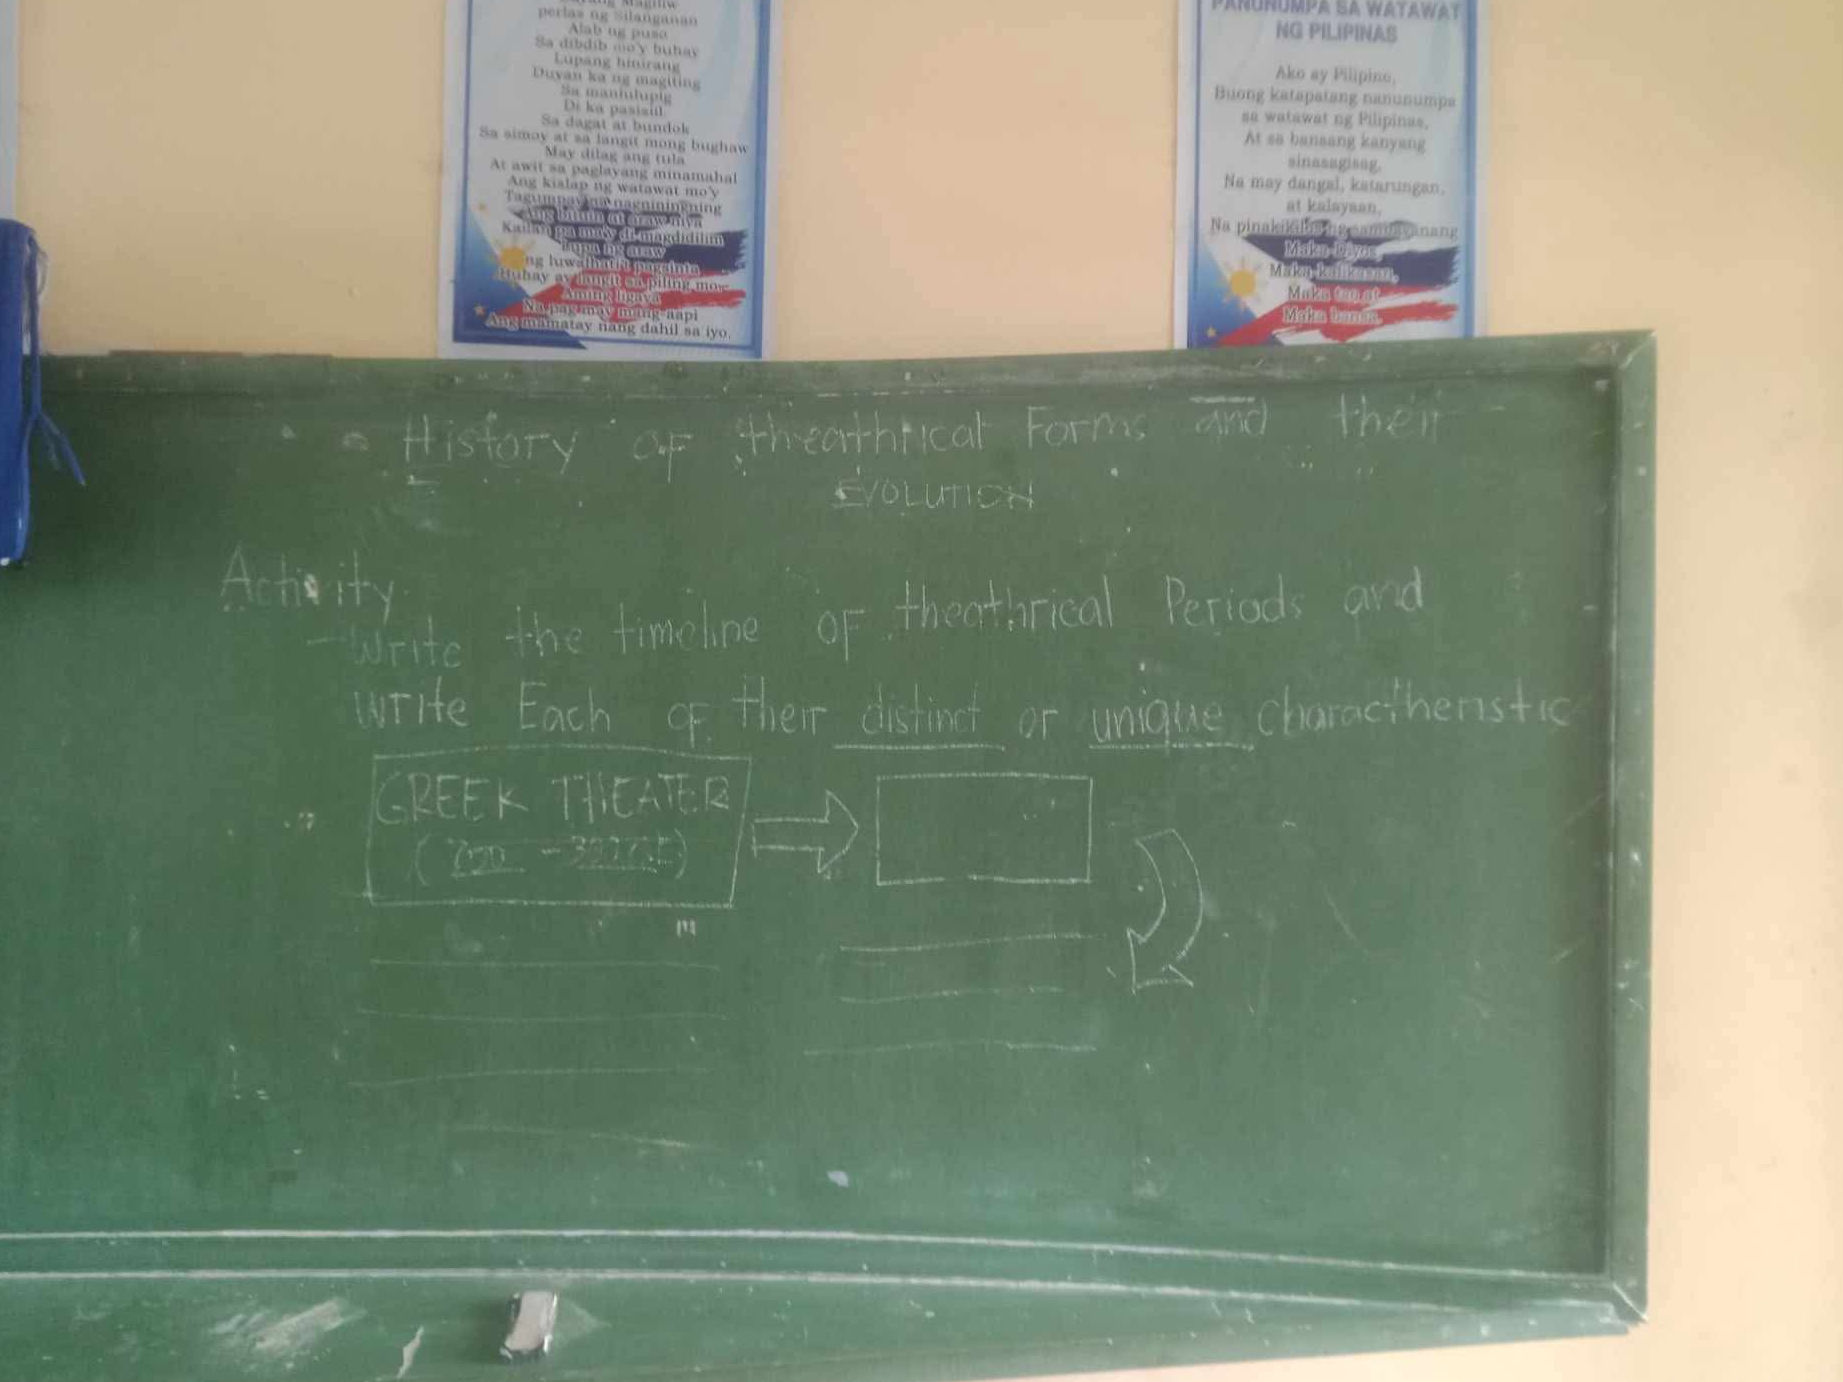 perlas ng Silanganan
Alab ng puso
Sa dibdib mo'y buhay
Lupang hinirang
Duyan ka ng magiting
Sa manlulupig
Di ka pasisiil
Sa dagat at bundok
Sa simoy at sa langit mong bughaw
May dilag ang tula
At awit sa paglayang minamahal
Ang kislap ng watawat mo'y
Tagumpay na nagniningning
Ang bituin at araw niya
Kailan pa ma'y di magdidilim
Lupa ng araw
ng luwalhati't pagsinta
Buhay ay langit sa piling mo
Aming ligaya
Na pag may mang-aapi
Ang mamatay nang dahil sa iyo.
PANUNUMPA SA WATAWAT
NG PILIPINAS
Ako ay Pilipino,
Buong katapatang nanunumpa
sa watawat ng Pilipinas,
At sa bansang kanyang
sinasagisag,
Na may dangal, katarungan,
at kalayaan,
Na pinakikilos ng sambayanang
Maka-Diyos,
Maka-kalikasan,
Maka tao at
Maka bansa.
History of theathrical Forms and their
EVOLUTION
Activity
- Write the timeline of theathrical Periods and
write Each of their distinct or unique characteristic
GREEK THEATER
(700 -